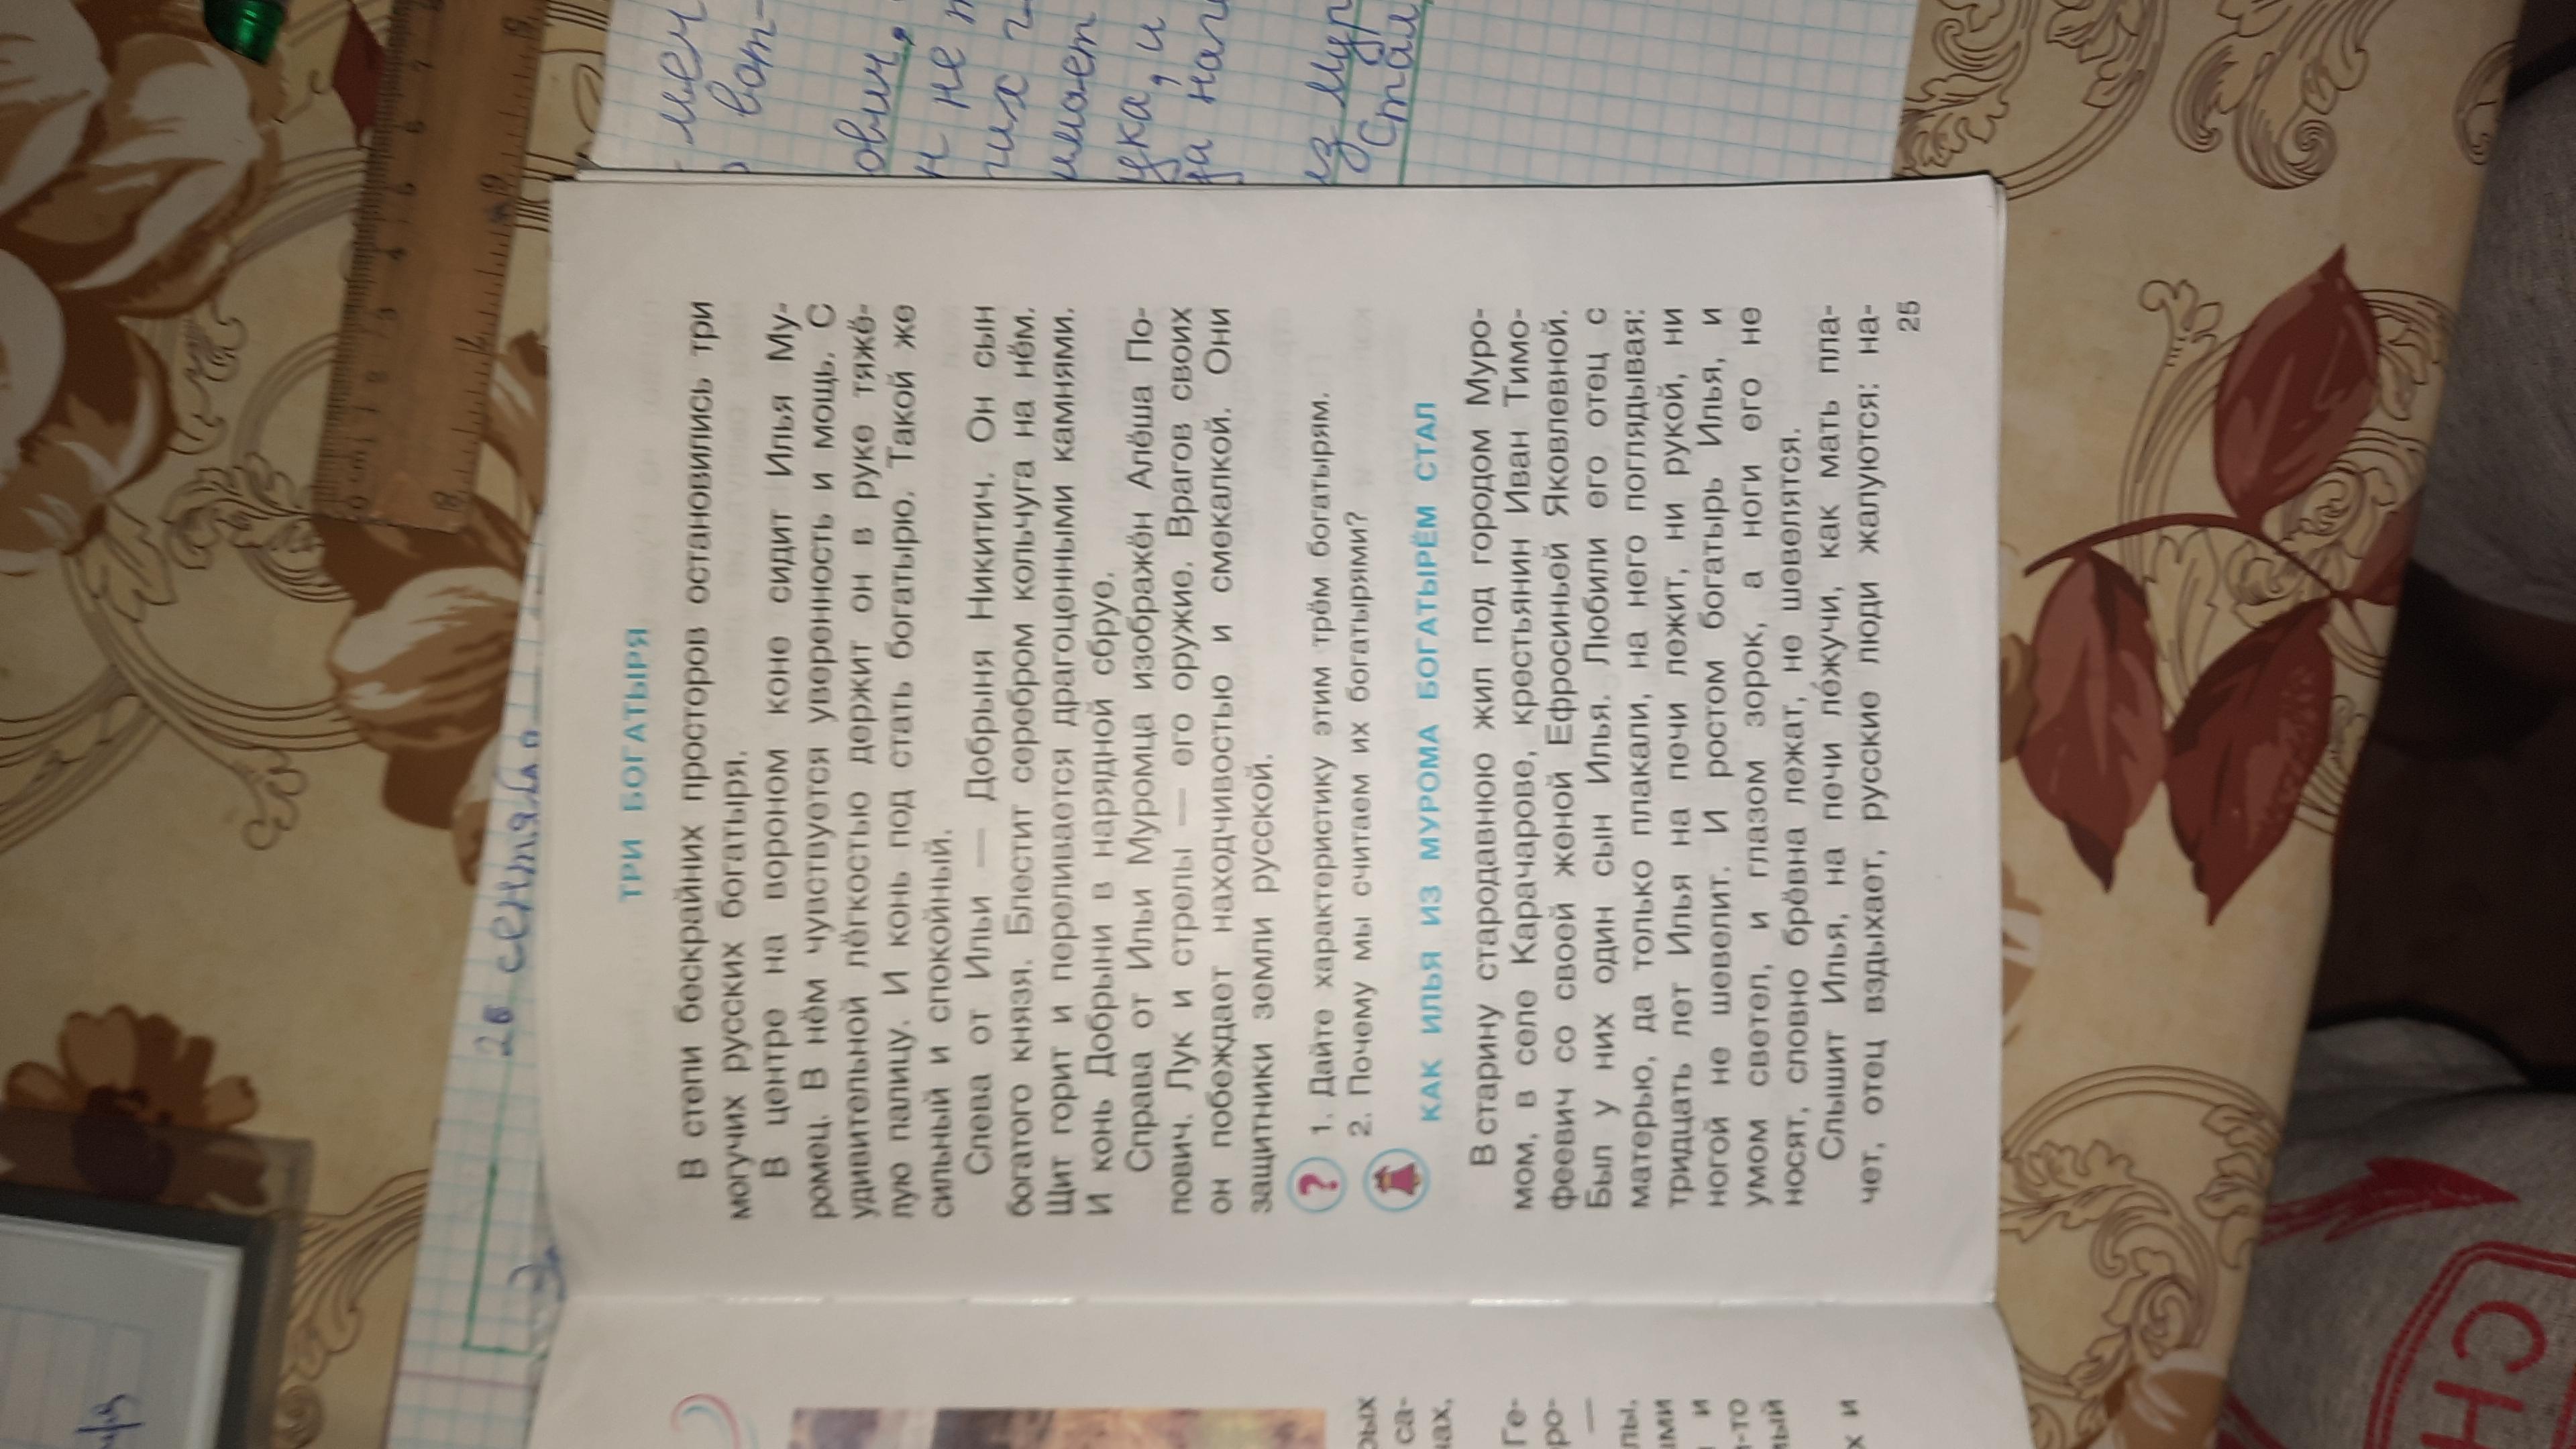 ТРИ БОГАТЫРЯ
В степи бескрайних просторов остановились три
могучих русских богатыря.
В центре на вороном коне сидит Илья Му-
ромец. В нём чувствуется уверенность и мощь. С
удивительной лёгкостью держит он в руке тяжё-
лую палицу. И конь под стать богатырю. Такой же
сильный и спокойный.
Слева от Ильи — Добрыня Никитич. Он сын
богатого князя. Блестит серебром кольчуга на нём.
Щит горит и переливается драгоценными камнями.
И конь Добрыни в нарядной сбруе.
Справа от Ильи Муромца изображён Алёша По-
пович. Лук и стрелы — его оружие. Врагов своих
он побеждает находчивостью и смекалкой. Они
защитники земли русской.
? 1. Дайте характеристику этим трём богатырям.
2. Почему мы считаем их богатырями?
КАК ИЛЬЯ ИЗ МУРОМА БОГАТЫРЁМ СТАЛ
В старину стародавнюю жил под городом Муро-
мом, в селе Карачарове, крестьянин Иван Тимо-
феевич со своей женой Ефросиньей Яковлевной.
Был у них один сын Илья. Любили его отец с
матерью, да только плакали, на него поглядывая:
тридцать лет Илья на печи лежит, ни рукой, ни
ногой не шевелит. И ростом богатырь Илья, и
умом светел, и глазом зорок, а ноги его не
носят, словно брёвна лежат, не шевелятся.
Слышит Илья, на печи лёжучи, как мать пла-
чет, отец вздыхает, русские люди жалуются: на-
25
меч
вот-
ович,
н не
их
имает
ука, и
да
из Мур
Стал
CH